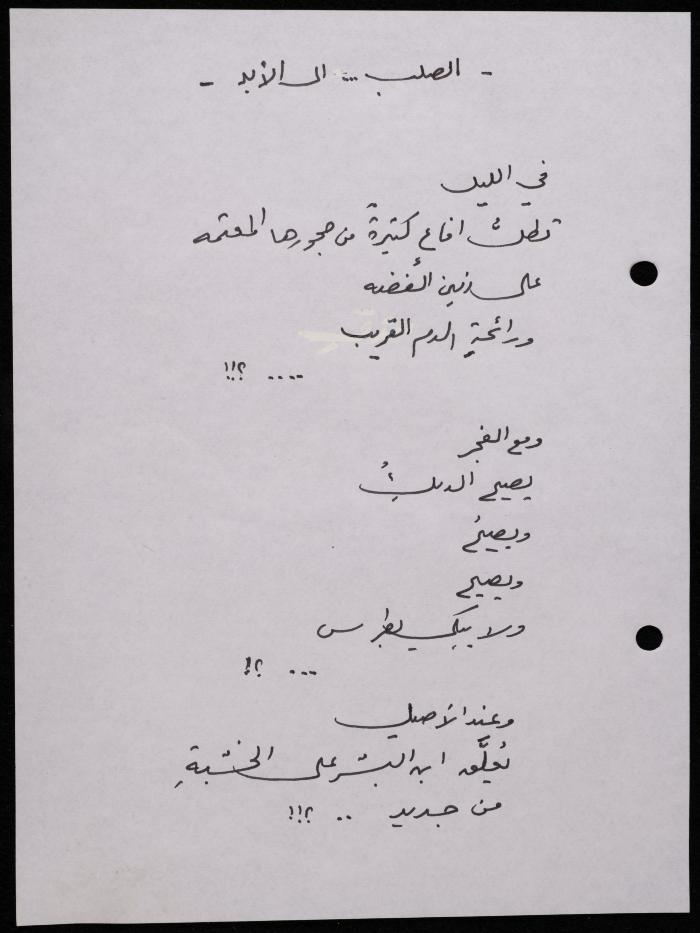 - الصلب ... الى الأبد -
في الليل
تطلّ افاعٍ كثيرةٌ من جحورها المعتمه
على رنين الفضه
ورائحةِ الدم القريب
.... ؟!!
ومع الفجر
يصيح الديكُ
ويصيحُ
ويصيح
ولا يبكي بطرس
... ؟!
وعند الأصيل
يُعلَّق ابن البشر على الخشبةِ
من جديد .. ؟!!